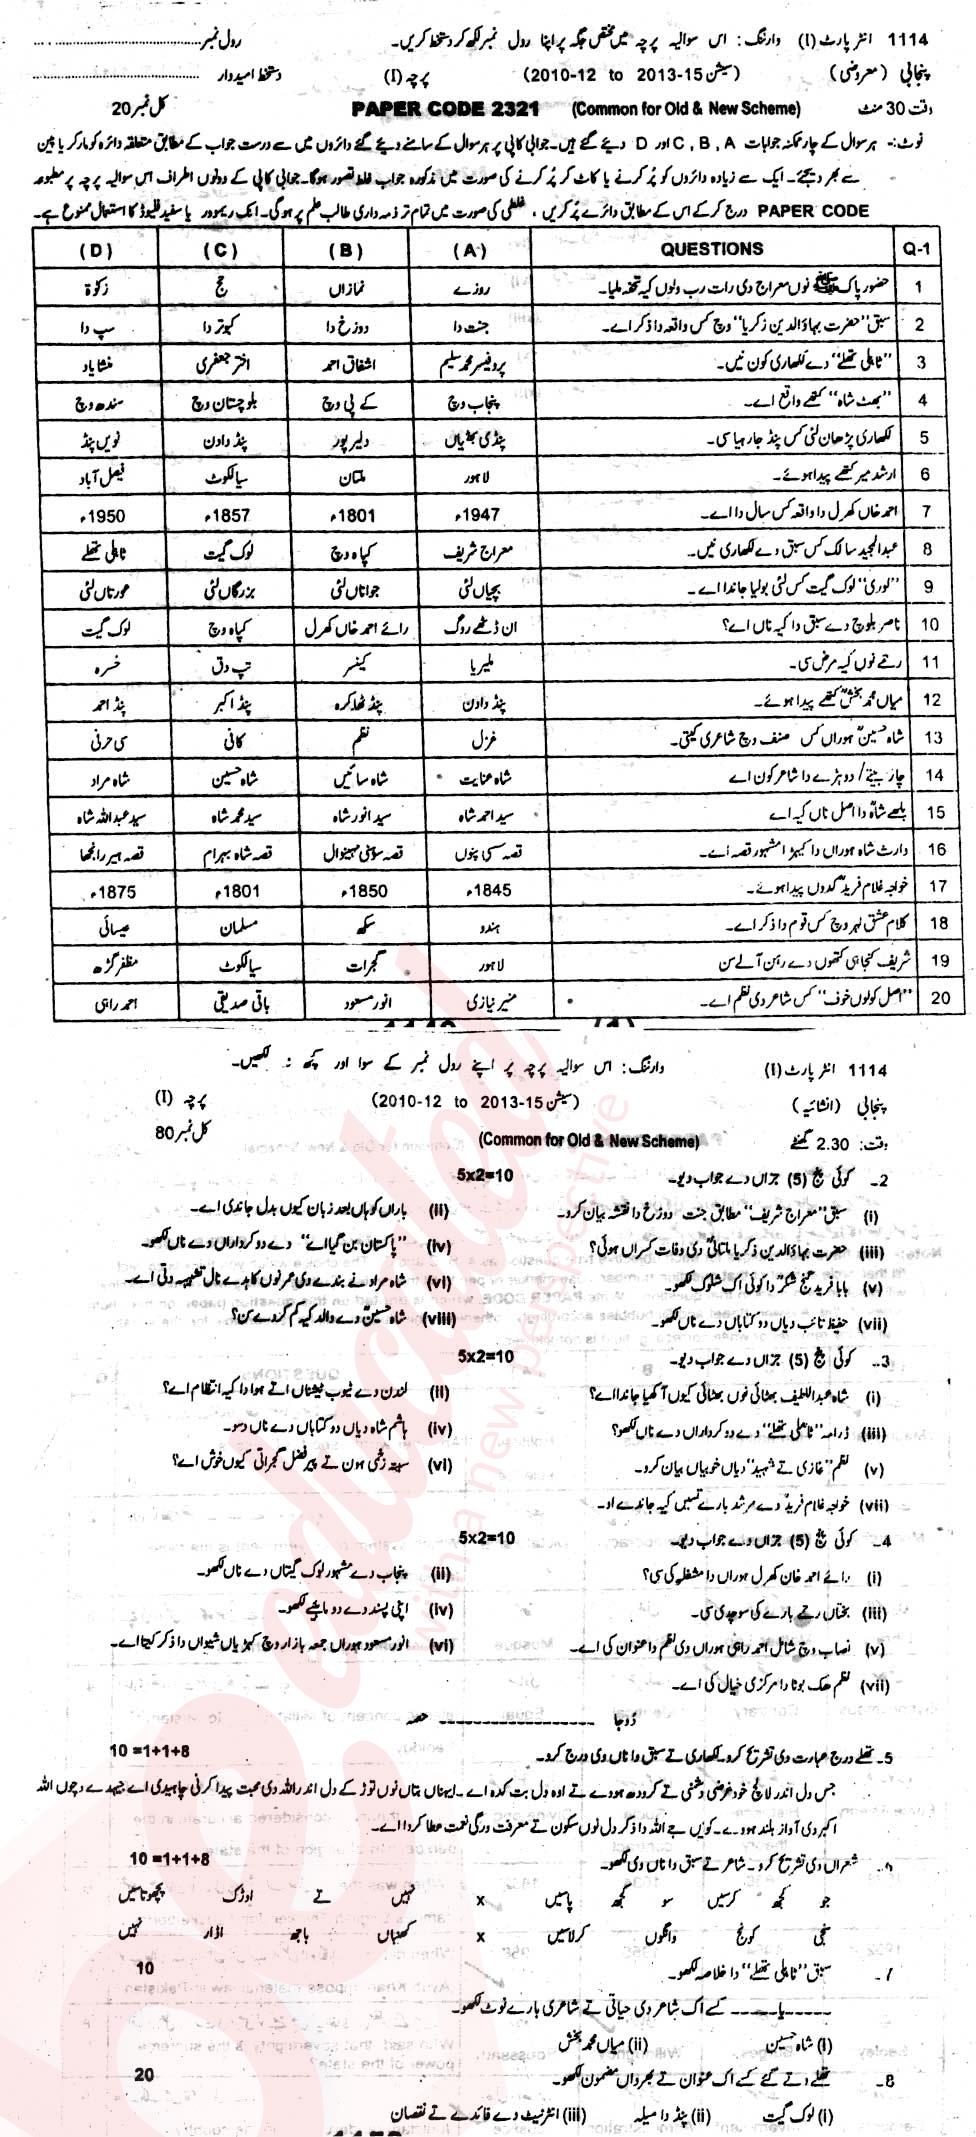 1114 انٹر پارٹ (I) وارننگ: اس سوالیہ پرچہ میں مختص جگہ پر اپنا رول نمبر لکھ کر دستخط کریں۔ رول نمبر
پنجابی (معروضی) (سیشن 2010-12 to 2013-15) پرچہ (I) دستخط امیدوار
وقت 30 منٹ PAPER CODE 2321 (Common for Old & New Scheme) کل نمبر 20
نوٹ:- ہر سوال کے چار ممکنہ جوابات C , B , A اور D دیئے گئے ہیں۔ جوابی کاپی پر ہر سوال کے سامنے دیئے گئے دائروں میں سے درست جواب کے مطابق متعلقہ دائرہ کو مارکر یا پین
سے بھر دیجئے۔ ایک سے زیادہ دائروں کو پُر کرنے یا کاٹ کر پُر کرنے کی صورت میں مذکورہ جواب غلط تصور ہوگا۔ جوابی کاپی کے دونوں اطراف اس سوالیہ پرچہ پر مطبوعہ
PAPER CODE درج کر کے اس کے مطابق دائرے پُر کریں ، غلطی کی صورت میں تمام تر ذمہ داری طالب علم پر ہوگی۔ انک ریموور یا سفید فلیوڈ کا استعمال ممنوع ہے۔
Q-1 QUESTIONS (A) (B) (C) (D)
1 حضور پاک ﷺ نوں معراج دی رات رب ولوں کیہ تحفہ ملیا۔ روزے نمازاں حج زکوٰۃ
2 سبق "حضرت بہاؤالدین زکریا" وچ کس واقعہ دا ذکر اے۔ جنت دا دوزخ دا کبوتر دا سپ دا
3 "ٹاہلی تھلے" دے لکھاری کون نیں۔ پروفیسر محمد سلیم اشفاق احمد اختر جعفری منشا یاد
4 "بھٹ شاہ" کتھے واقع اے۔ پنجاب وچ کے پی وچ بلوچستان وچ سندھ وچ
5 لکھاری پڑھان لئی کس پنڈ جا رہیا سی۔ پنڈی بھٹیاں دلیر پور پنڈ دادن نویں پنڈ
6 ارشد میر کتھے پیدا ہوئے۔ لاہور ملتان سیالکوٹ فیصل آباد
7 احمد خاں کھرل دا واقعہ کس سال دا اے۔ 1947ء 1801ء 1857ء 1950ء
8 عبدالمجید سالک کس سبق دے لکھاری نیں۔ معراج شریف کپاہ وچ لوک گیت ٹاہلی تھلے
9 "لوری" لوک گیت کس لئی بولیا جاندا اے۔ بچیاں لئی جواناں لئی بزرگاں لئی عورتاں لئی
10 ناصر بلوچ دے سبق دا کیہ ناں اے؟ ان ڈٹھے روگ رائے احمد خاں کھرل کپاہ وچ لوک گیت
11 رتے نوں کیہ مرض سی۔ ملیریا کینسر تپ دق خسرہ
12 میاں محمد بخشؒ کتھے پیدا ہوئے۔ پنڈ دادن پنڈ ٹھاکرہ پنڈ اکبر پنڈ احمد
13 شاہ حسینؒ ہوراں کس صنف وچ شاعری کیتی۔ غزل نظم کافی سی حرفی
14 چار بیتے/ دوہڑے دا شاعر کون اے شاہ عنایت شاہ سائیں شاہ حسین شاہ مراد
15 بلھے شاہؒ دا اصل ناں کیہ اے سید احمد شاہ سید انور شاہ سید محمد شاہ سید عبداللہ شاہ
16 وارث شاہ ہوراں دا کیہڑا مشہور قصہ اے۔ قصہ سسی پنوں قصہ سوہنی مہینوال قصہ شاہ بہرام قصہ ہیر رانجھا
17 خواجہ غلام فریدؒ کدوں پیدا ہوئے۔ 1845ء 1850ء 1801ء 1875ء
18 کلام عشق لہر وچ کس قوم دا ذکر اے۔ ہندو سکھ مسلمان عیسائی
19 شریف کنجاہی کتھوں دے رہن آلے سن لاہور گجرات سیالکوٹ مظفر گڑھ
20 "اصل کولوں خوف" کس شاعر دی نظم اے۔ منیر نیازی انور مسعود باقی صدیقی احمد راہی
1114 انٹر پارٹ (I) وارننگ: اس سوالیہ پرچہ پر اپنے رول نمبر کے سوا اور کچھ نہ لکھیں۔
پنجابی (انشائیہ) (سیشن 2010-12 to 2013-15) پرچہ (I)
وقت: 2.30 گھنٹے (Common for Old & New Scheme) کل نمبر 80
2۔ کوئی پنج (5) جزاں دے جواب دیو۔ 5x2=10
(i) سبق "معراج شریف" مطابق جنت دوزخ دا نقشہ بیان کرو۔ (ii) باراں کوہاں بعد زبان کیوں بدل جاندی اے۔
(iii) حضرت بہاؤالدین زکریا ملتانیؒ دی وفات کسراں ہوئی؟ (iv) "پاکستان بن گیا اے" دے دو کرداراں دے ناں لکھو۔
(v) بابا فرید گنج شکرؒ دا کوئی اک شلوک لکھو۔ (vi) شاہ مراد نے بندے دی عمر نوں کاہدے نال تشبیہ دتی اے۔
(vii) حفیظ تائب دیاں دو کتاباں دے ناں لکھو۔ (viii) شاہ حسینؒ دے والد کیہ کم کردے سن؟
3۔ کوئی پنج (5) جزاں دے جواب دیو۔ 5x2=10
(i) شاہ عبداللطیف بھٹائی نوں بھٹائی کیوں آکھیا جاندا اے؟ (ii) لندن دے ٹیوب ٹیشناں اتے ہوا دا کیہ انتظام اے؟
(iii) ڈرامہ "ٹاہلی تھلے" دے دو کرداراں دے ناں لکھو؟ (iv) ہاشم شاہ دیاں دو کتاباں دے ناں دسو۔
(v) نظم "غازی تے شہید" دیاں خوبیاں بیان کرو۔ (vi) سینہ زخمی ہون تے پیر فضل گجراتی کیوں خوش اے؟
(vii) خواجہ غلام فریدؒ دے مرشد بارے تسیں کیہ جاندے او۔
4۔ کوئی پنج (5) جزاں دے جواب دیو۔ 5x2=10
(i) رائے احمد خان کھرل ہوراں دا مشغلہ کی سی؟ (ii) پنجاب دے مشہور لوک گیتاں دے ناں لکھو۔
(iii) بختاں رتے بارے کی سوچدی سی۔ (iv) اپنی پسند دے دو ماہیے لکھو۔
(v) نصاب وچ شامل احمد راہی ہوراں دی نظم دا عنوان کی اے۔ (vi) انور مسعود ہوراں جمعہ بازار وچ کیہڑیاں شیواں دا ذکر کیتا اے۔
(vii) نظم ھک بوٹا دا مرکزی خیال کی اے۔
دُوجا حصہ
5۔ تھلے درج عبارت دی تشریح کرو۔ لکھاری تے سبق دا ناں وی درج کرو۔ 10 =1+1+8
جس دل اندر لالچ خودغرضی دشمنی تے کرودھ ہووے تے اوہ دل بت کدہ اے۔ ایہناں بتاں نوں توڑ کے دل اندر اللہ دی محبت پیدا کرنی چاہیدی اے جیہدے وچوں اللہ
اکبر دی آواز بلند ہووے۔ کویں جے اللہ دا ذکر دل نوں سکون تے معرفت ورگی نعمت عطا کردا اے۔
شعراں دی تشریح کرو۔ شاعر تے سبق دا ناں وی لکھو۔ 10 =1+1+8
جو کجھ کرسیں سو کجھ پاسیں x نہیں تے اوڑک پچھوتاسیں
سُنجی کونج وانگوں کرلاسیں x کھنباں باجھ اڈار نہیں
7۔ سبق "ٹاہلی تھلے" دا خلاصہ لکھو۔ 10
یا کسے اک شاعر دی حیاتی تے شاعری بارے نوٹ لکھو۔
(i) شاہ حسین (ii) میاں محمد بخش
8۔ تھلے دتے گئے کسے اک عنوان تے بھرواں مضمون لکھو۔ 20
(i) لوک گیت (ii) پنڈ دا میلہ (iii) انٹرنیٹ دے فائدے تے نقصان